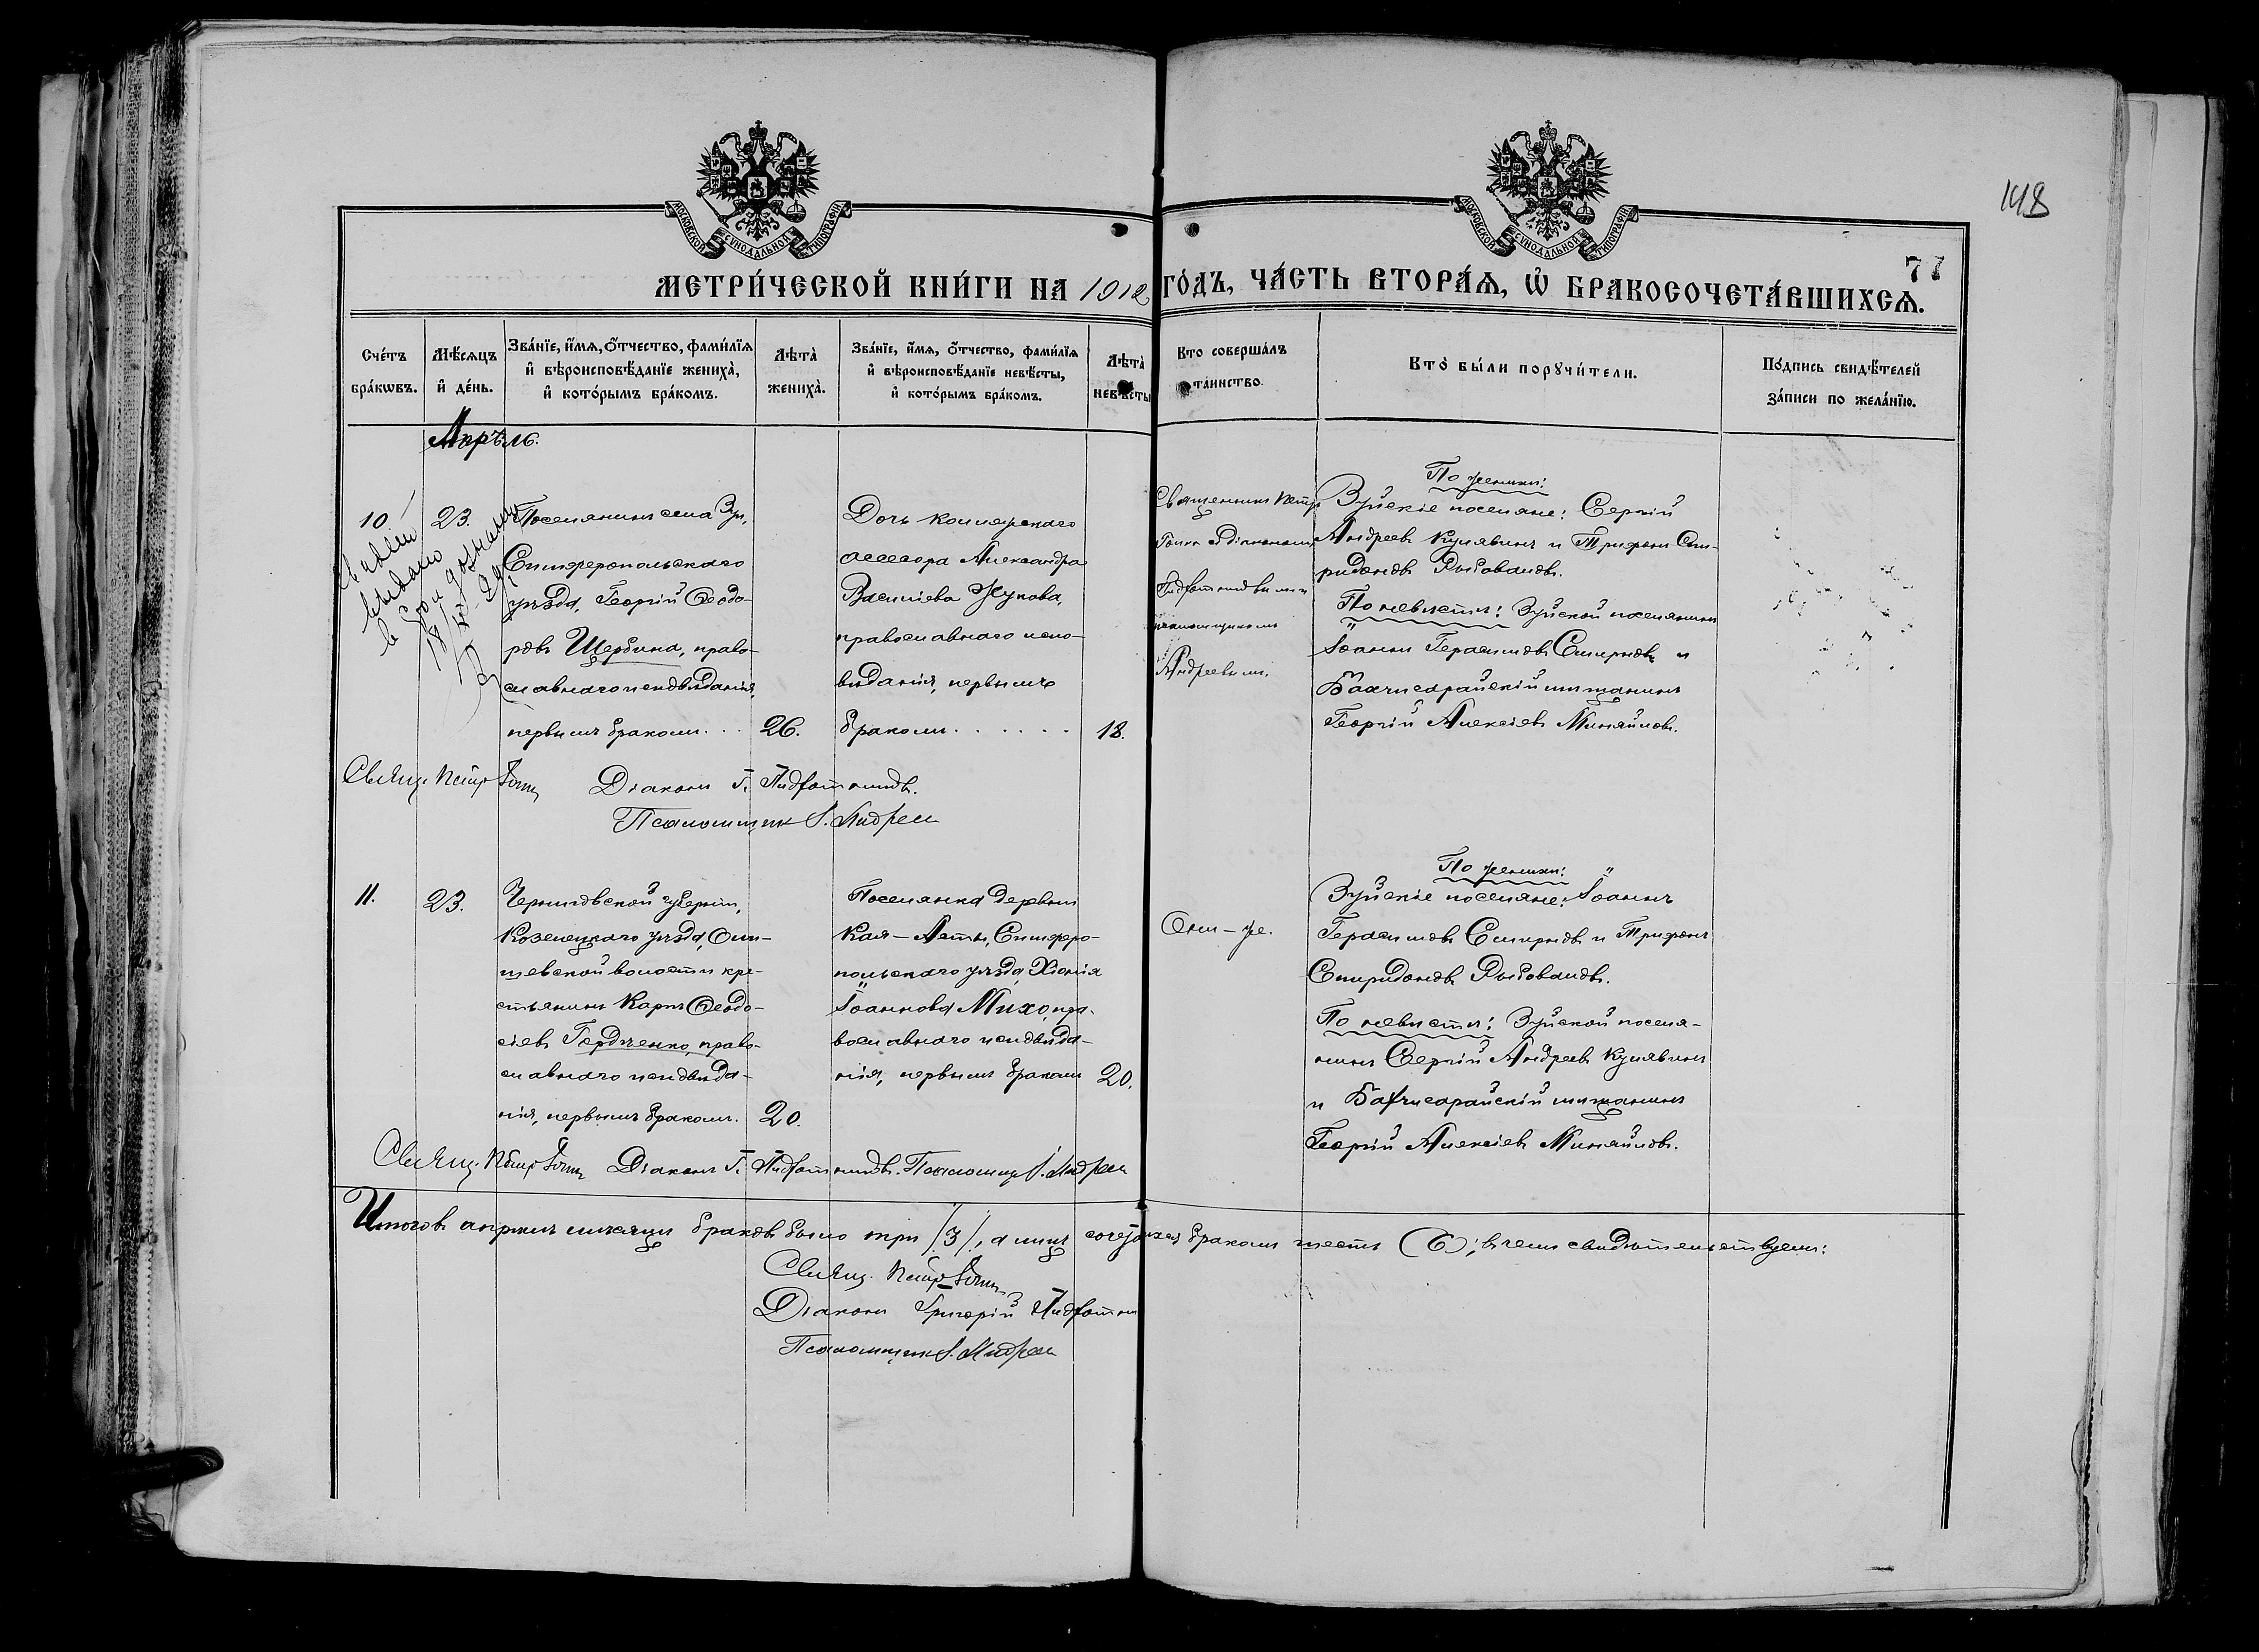 148
77
МОСКОВСКОЙ СѴНОДАЛЬНОЙ ТИПОГРАФІИ
МОСКОВСКОЙ СѴНОДАЛЬНОЙ ТИПОГРАФІИ
МЕТРИ́ЧЕСКОЙ КНИ́ГИ НА 1912 ГО́ДЪ, ЧА́СТЬ ВТОРА́Ѧ, Ѡ҆ БРАКОСОЧЕТА́ВШИХСѦ.
Сче́тъ
бра́кѡвъ.
Мѣ́сѧцъ
и҆ де́нь.
Зва́нїе, и҆́мѧ, ѻ҆́тчество, фами́лїѧ
и҆ вѣроисповѣ́данїе жениха̀,
и҆ кото́рымъ бра́комъ.
Лѣта̀
жениха̀.
Зва́нїе, и҆́мѧ, ѻ҆́тчество, фами́лїѧ
и҆ вѣроисповѣ́данїе невѣ́сты,
и҆ кото́рымъ бра́комъ.
Лѣта̀
невѣ́сты
Кто̀ соверша́лъ
та́инство.
Кто̀ бы́ли порꙋчи́тели.
По́дпись свидѣ́телей
за́писи по жела́нїю.
Апрѣль.
10.
23.
Поселянинъ села Зуи,
Симферопольскаго
уѣзда, Георгій Ѳеодо-
ровъ Щербина, право-
славнаго исповѣданія,
первымъ бракомъ...
26.
Дочь коллежскаго
ассесора Александра
Василіева Жукова,
православнаго испо-
вѣданія, первымъ
бракомъ......
18.
Священникъ Петръ
діакономъ
псаломщикомъ
Андреевымъ.
По женихѣ:
Зуйскіе поселяне: Сергій
Андреевъ Кулявинъ и Трифонъ Спи-
ридоновъ Рыбоваловъ.
По невѣстѣ: Зуйской поселянинъ
Іоаннъ Герасимовъ Смирновъ и
Бахчисарайскій мѣщанинъ
Георгій Алексіевъ Минайловъ.
выдано
Свящ. Петръ
Діаконъ Г.
Псаломщикъ І. Андреев
11.
23.
Черниговской губерніи,
Козелецкаго уѣзда, Оли-
шевской волости кре-
стьянинъ Карпъ Ѳеодо-
сіевъ Гордченко, право-
славнаго исповѣда-
нія, первымъ бракомъ.
20.
Поселянка деревни
Кая-Асты, Симферо-
польскаго уѣзда Хіонія
Іоаннова Михо, пра-
вославнаго исповѣда-
нія, первымъ бракомъ
20.
Они-же.
По женихѣ:
Зуйскіе поселяне: Іоаннъ
Герасимовъ Смирновъ и Трифонъ
Спиридоновъ Рыбоваловъ.
По невѣстѣ: Зуйской поселя-
нинъ Сергій Андреевъ Кулявинъ
и Бахчисарайскій мѣщанинъ
Георгій Алексіевъ Минайловъ.
Свящ. Петръ Діаконъ Г. Псаломщ. І. Андреев
Итого въ апрѣлѣ мѣсяцѣ браковъ было три /3/, а лицъ бракомъ шесть (6); въ чемъ свидѣтельствуемъ:
Свящ. Петръ
Діаконъ Григорій
Псаломщикъ І. Андреев